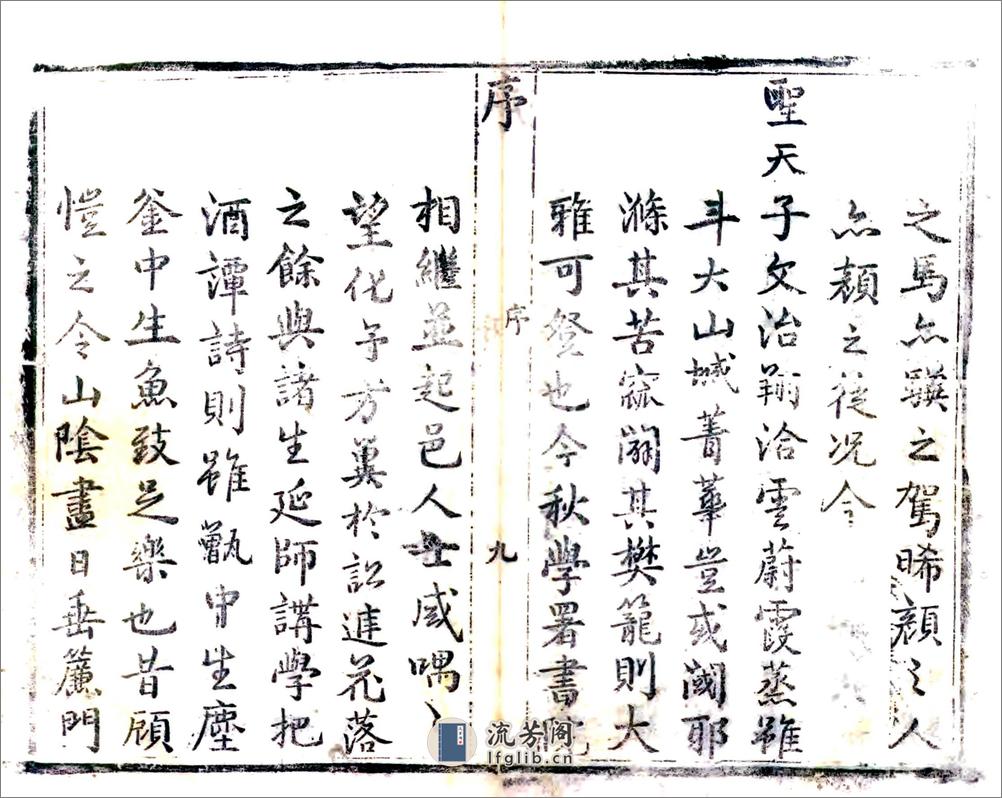 之馬亦驥之駕晞顏之人
亦顏之徒况今
聖天子文治翔洽雲蔚霞蒸雖
斗大山城菁華豈或閾耶
滌其苦窳闢其樊籠則大
雅可登也今秋學署書
序
序
九
相繼並起邑人士咸喁〻
望化予方冀於訟進花落
之餘與諸生延師講學把
酒譚詩則雖甑中生塵
釜中生魚致足樂也昔顧
愷之令山陰晝日垂簾門
流芳阁
lfglib.cn